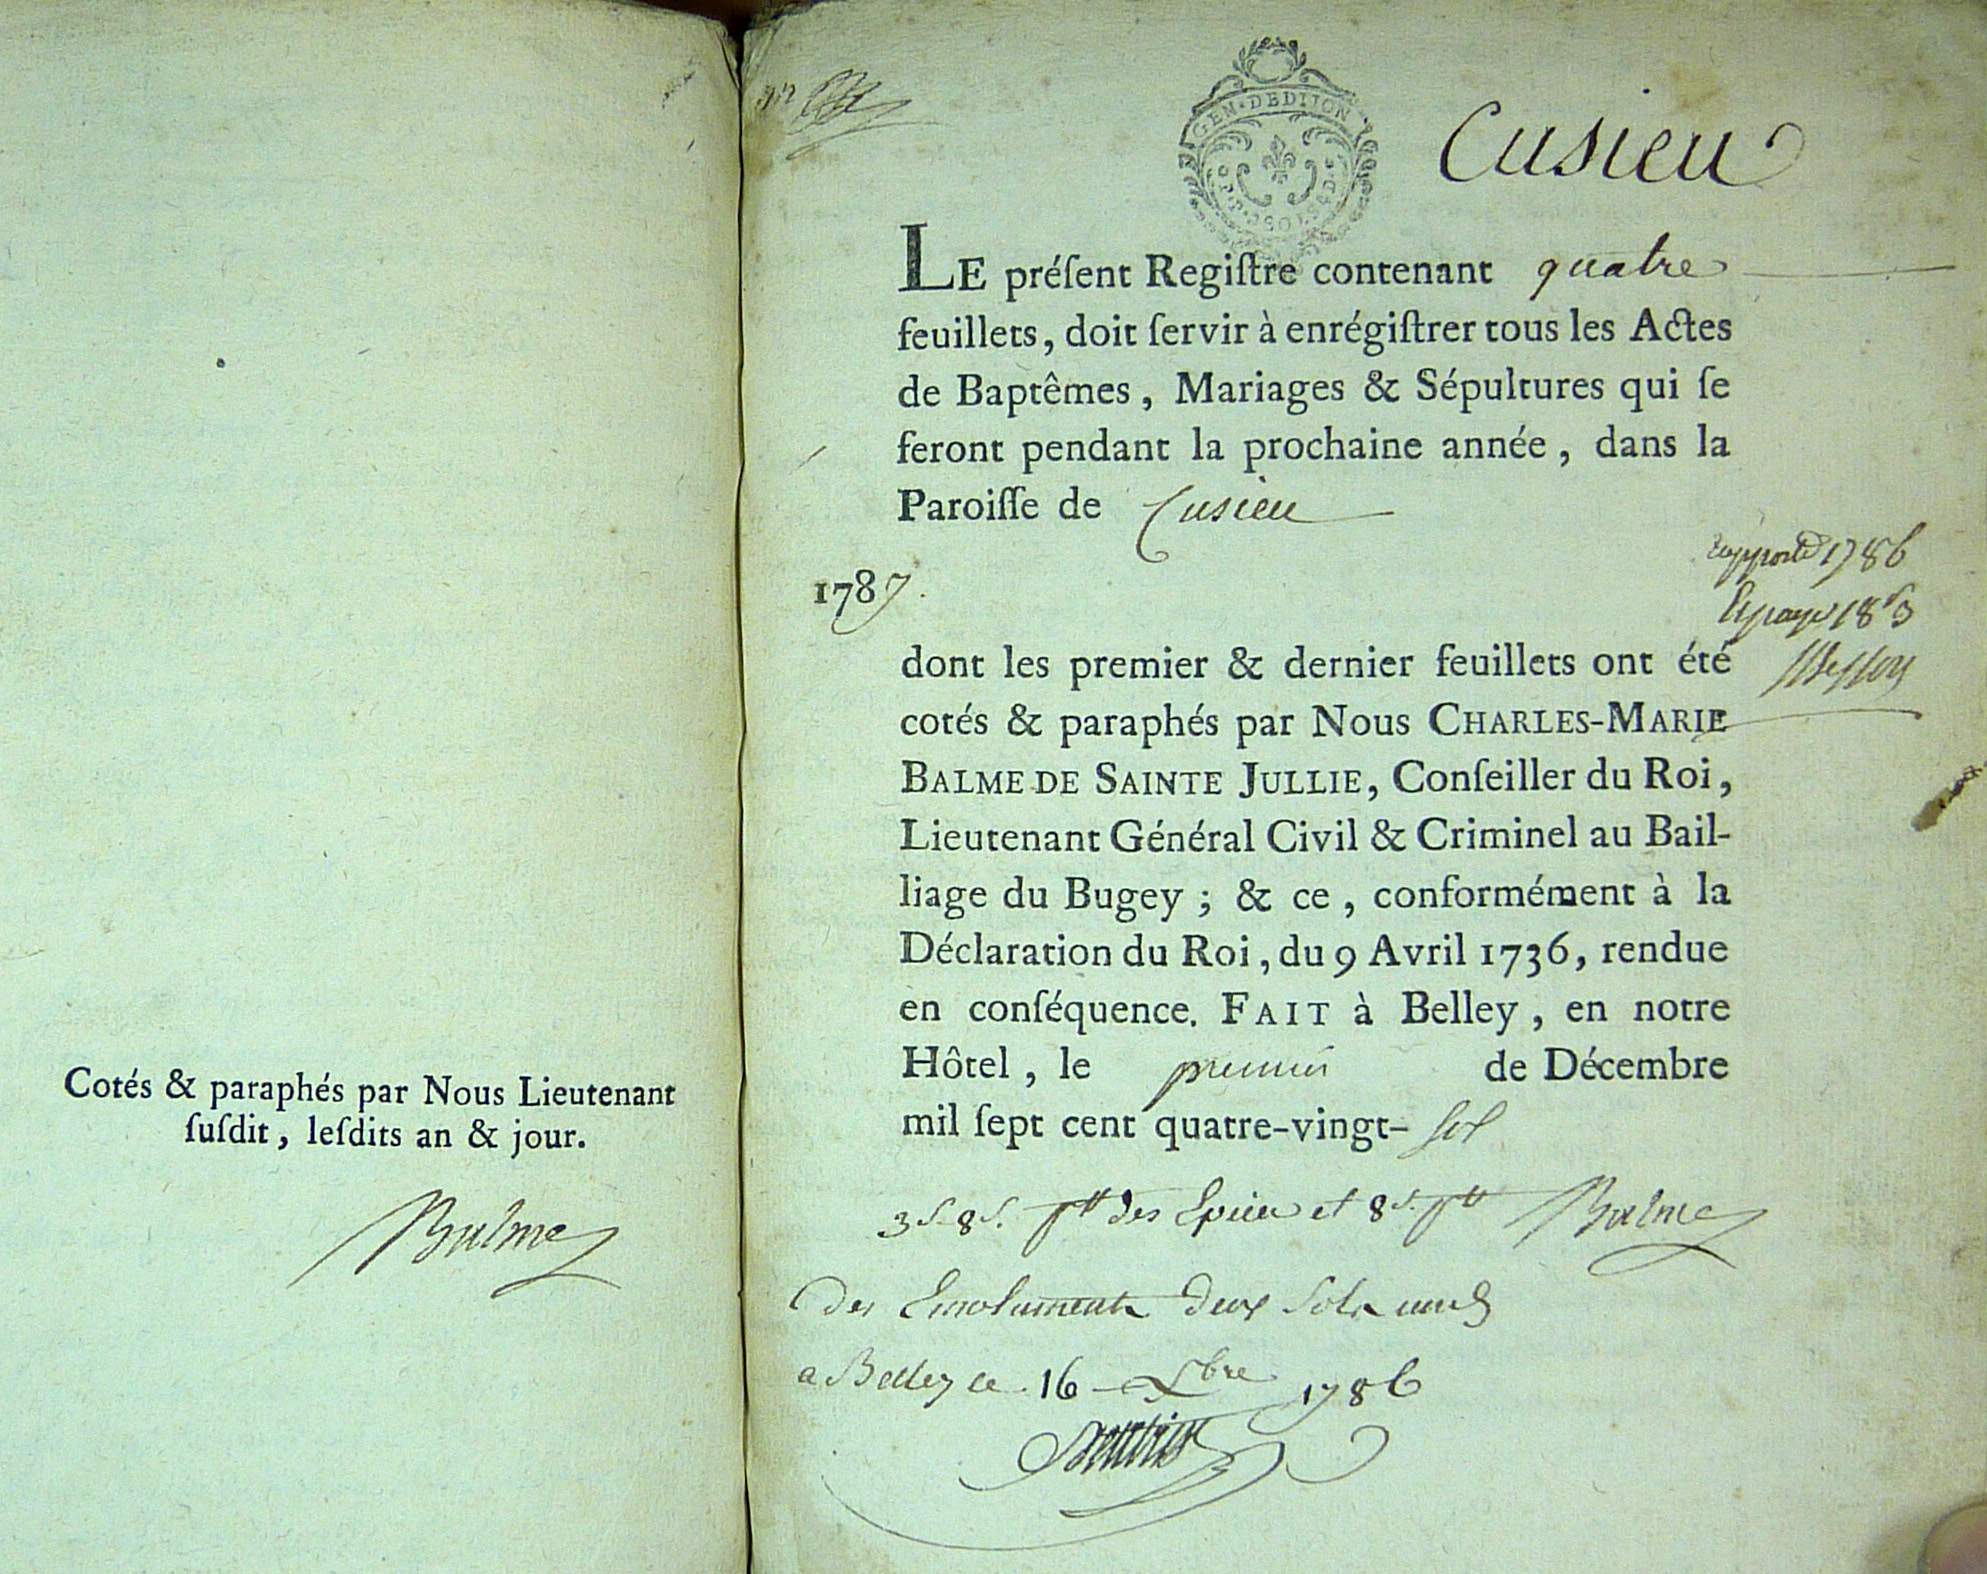 Cotés & paraphés par Nous Lieutenant
ſuſdit, leſdits an & jour.
Balme
GEN·DEDIJON
Cusieu
LE préſent Regiſtre contenant quatre
feuillets, doit ſervir à enrégiſtrer tous les Actes
de Baptêmes, Mariages & Sépultures qui ſe
feront pendant la prochaine année, dans la
Paroiſſe de Cusieu
1787.
dont les premier & dernier feuillets ont été
cotés & paraphés par Nous CHARLES-MARIE
BALME DE SAINTE JULLIE, Conſeiller du Roi,
Lieutenant Général Civil & Criminel au Bail-
liage du Bugey; & ce, conformément à la
Déclaration du Roi, du 9 Avril 1736, rendue
en conſéquence. FAIT à Belley, en notre
Hôtel, le premier de Décembre
mil ſept cent quatre-vingt-
rapporté 1786
3 s. 8 d. des Epices et 8 Balme
des Emoluments deux sols
a Belley ce 16 Xbre 1786